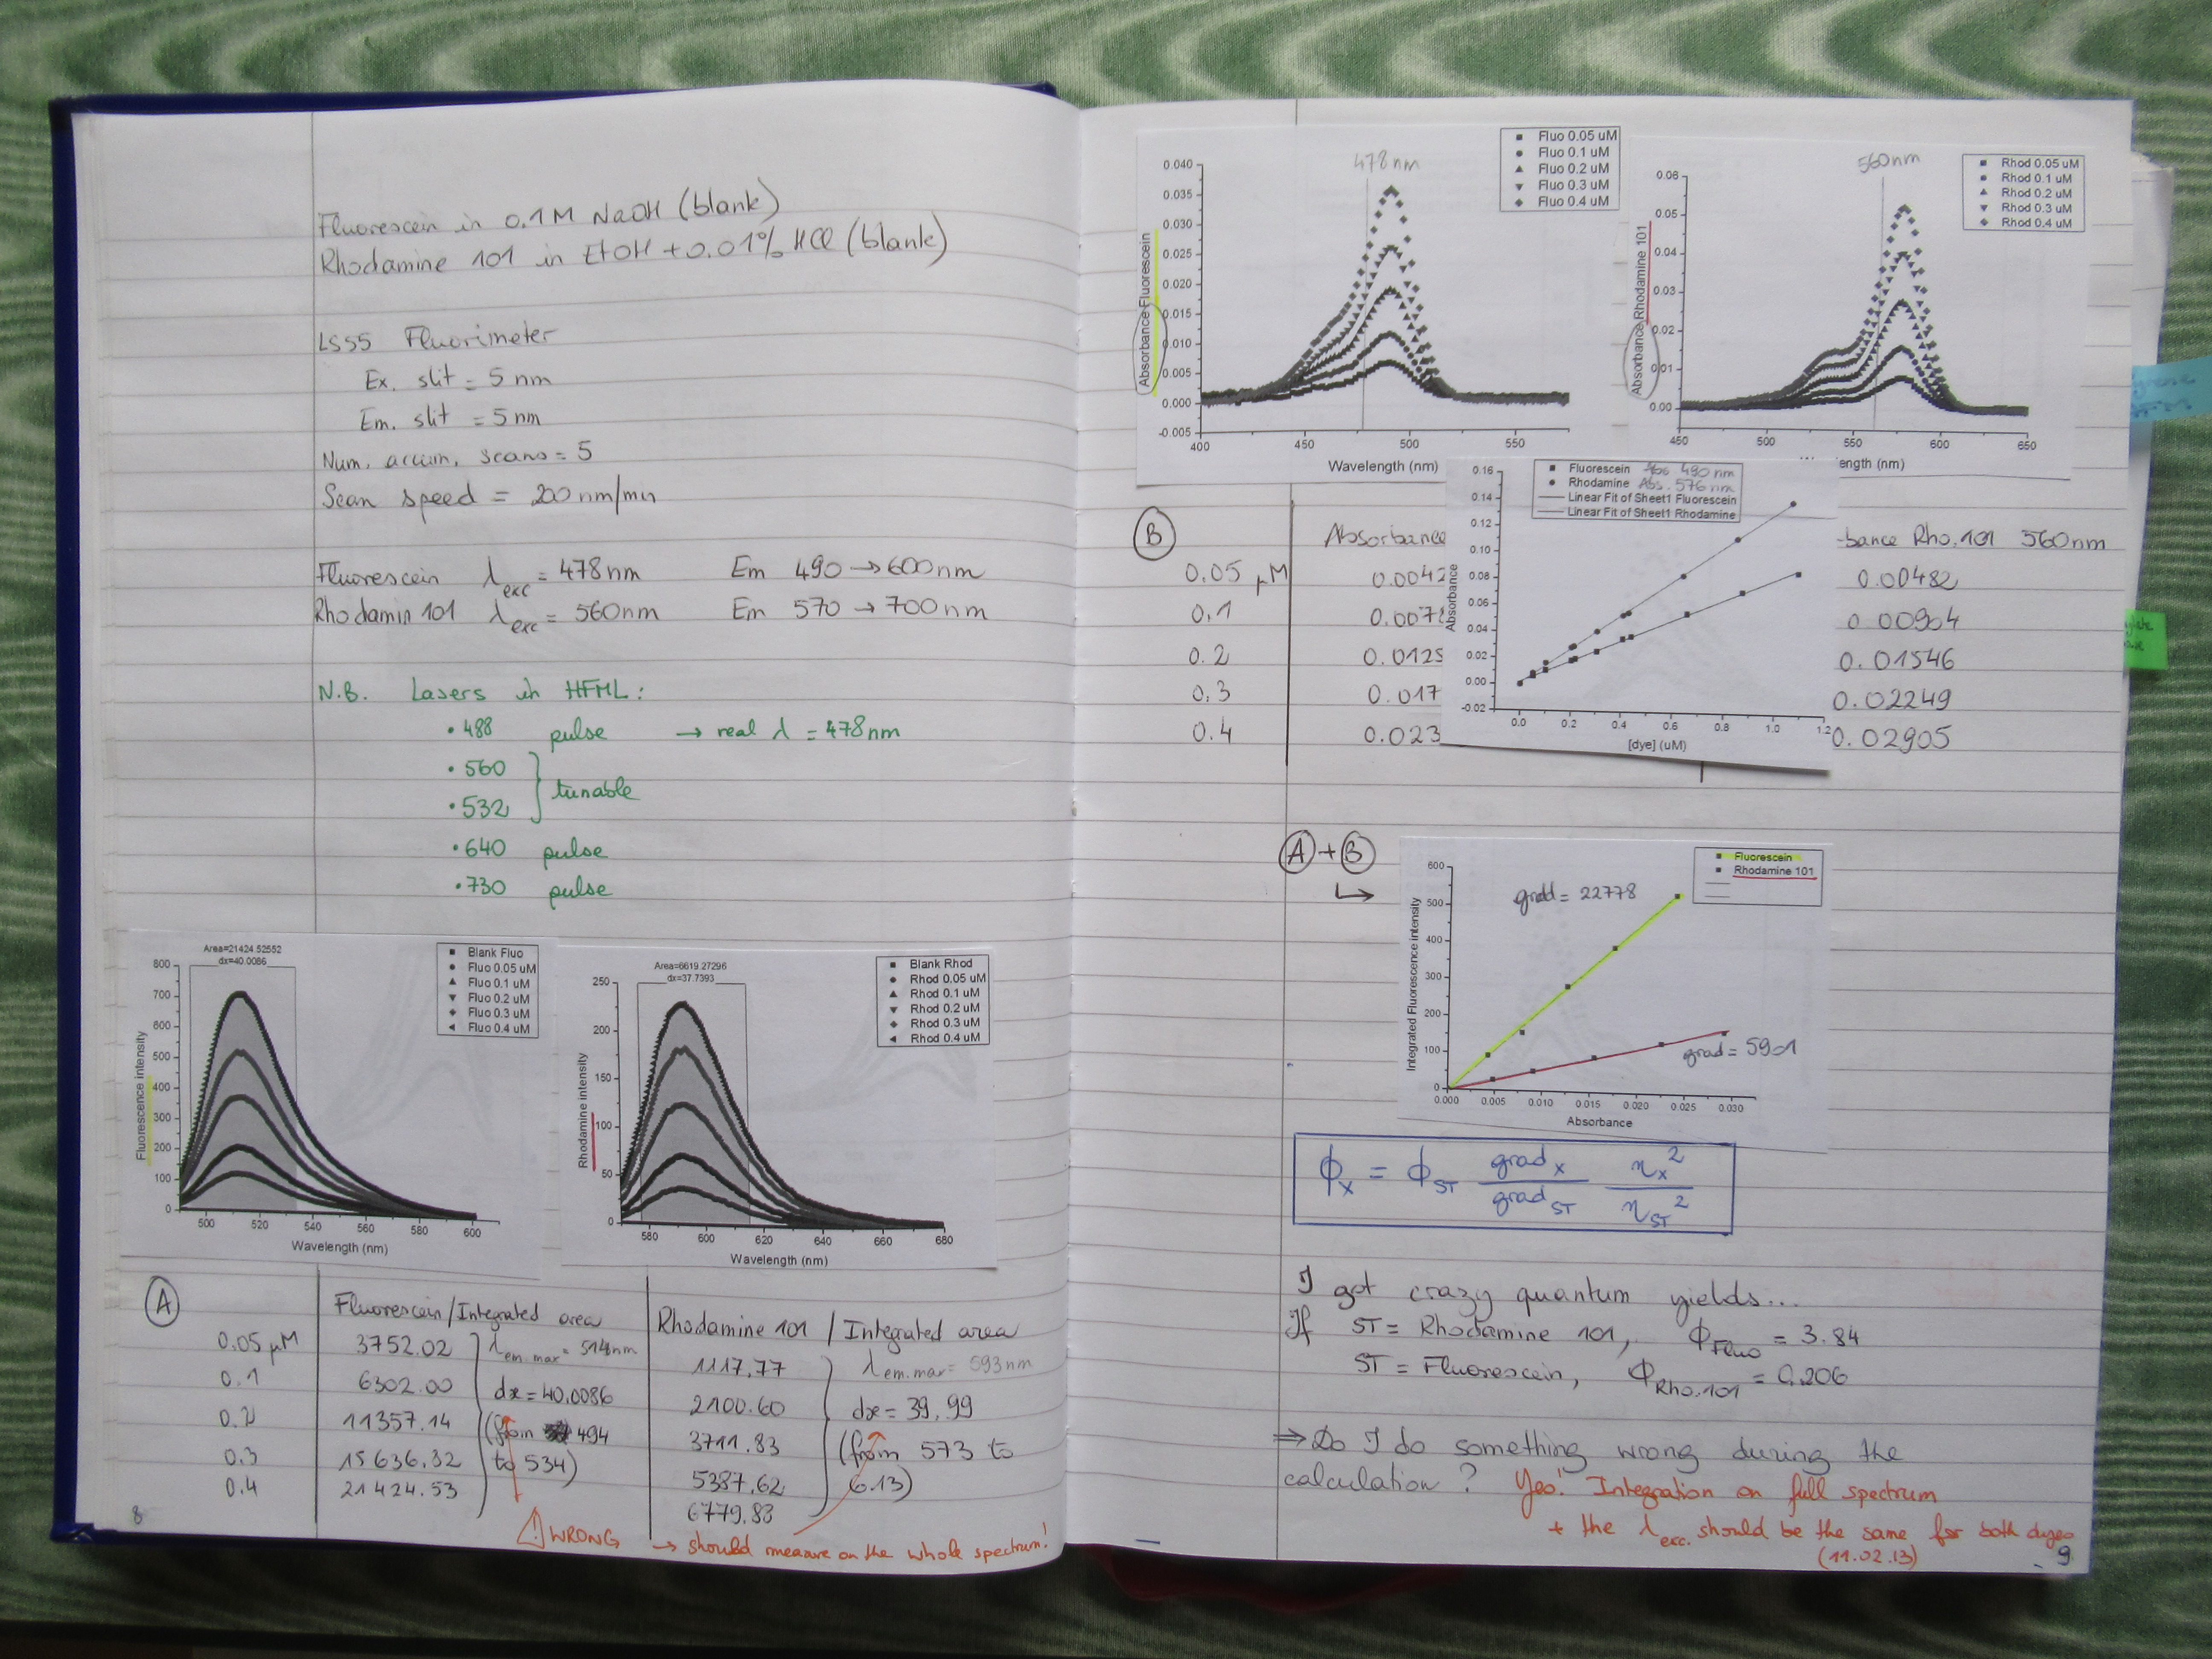 Fluorescein in 0.1M NaOH (blank)
Rhodamine 101 in EtOH + 0.01% HCl (blank)
LS55 Fluorimeter
Ex. slit = 5 nm
Em. slit = 5 nm
Num. accum. scans = 5
Scan speed = 200 nm/min
Fluorescein λexc = 478 nm Em 490 → 600 nm
Rhodamin 101 λexc = 560 nm Em 570 → 700 nm
N.B. Lasers in HFML:
• 488 pulse → real λ = 478 nm
• 560
• 532 } tunable
• 640 pulse
• 730 pulse
Area=21424.52552
dx=40.0086
Blank Fluo
Fluo 0.05 uM
Fluo 0.1 uM
Fluo 0.2 uM
Fluo 0.3 uM
Fluo 0.4 uM
Fluorescence intensity
800
700
600
500
400
300
200
100
0
500 520 540 560 580 600
Wavelength (nm)
Area=6619.27296
dx=37.7393
Blank Rhod
Rhod 0.05 uM
Rhod 0.1 uM
Rhod 0.2 uM
Rhod 0.3 uM
Rhod 0.4 uM
Rhodamine intensity
250
200
150
100
50
0
580 600 620 640 660 680
Wavelength (nm)
A
Fluorescein / Integrated area Rhodamine 101 / Integrated area
0.05 µM 3752.02 λem.max = 514nm 1117.77 λem.max = 593nm
0.1 6302.00 dx = 40.0086 2100.60 dx = 39.99
0.2 11357.14 (from 494 3711.83 (from 573 to
0.3 15636.32 to 534) 5387.62 6.13)
0.4 21424.53 6779.83
⚠ WRONG → should measure on the whole spectrum!
8
478 nm
Fluo 0.05 uM
Fluo 0.1 uM
Fluo 0.2 uM
Fluo 0.3 uM
Fluo 0.4 uM
Absorbance Fluorescein
0.040
0.035
0.030
0.025
0.020
0.015
0.010
0.005
0.000
-0.005
400 450 500 550
Wavelength (nm)
560nm
Rhod 0.05 uM
Rhod 0.1 uM
Rhod 0.2 uM
Rhod 0.3 uM
Rhod 0.4 uM
Absorbance Rhodamine 101
0.06
0.05
0.04
0.03
0.02
0.01
0.00
450 500 550 600 650
ength (nm)
B
Absorbance
-bance Rho.101 560nm
0.05 µM 0.0042 0.00482
0.1 0.0078 0.00904
0.2 0.0125 0.01546
0.3 0.017 0.02249
0.4 0.023 0.02905
Fluorescein Abs. 490 nm
Rhodamine Abs. 576 nm
Linear Fit of Sheet1 Fluorescein
Linear Fit of Sheet1 Rhodamine
Absorbance
0.16
0.14
0.12
0.10
0.08
0.06
0.04
0.02
0.00
-0.02
0.0 0.2 0.4 0.6 0.8 1.0 1.2
[dye] (uM)
A + B
↳
Fluorescein
Rhodamine 101
grad = 22778
grad = 5901
Integrated Fluorescence intensity
600
500
400
300
200
100
0
0.000 0.005 0.010 0.015 0.020 0.025 0.030
Absorbance
ϕx = ϕST gradx / gradST nx² / nST²
I got crazy quantum yields...
If ST = Rhodamine 101, ϕFluo = 3.84
ST = Fluorescein, ϕRho.101 = 0.206
⇒ Do I do something wrong during the
calculation? Yes! Integration on full spectrum
+ the λexc. should be the same for both dyes
(11.02.13)
9